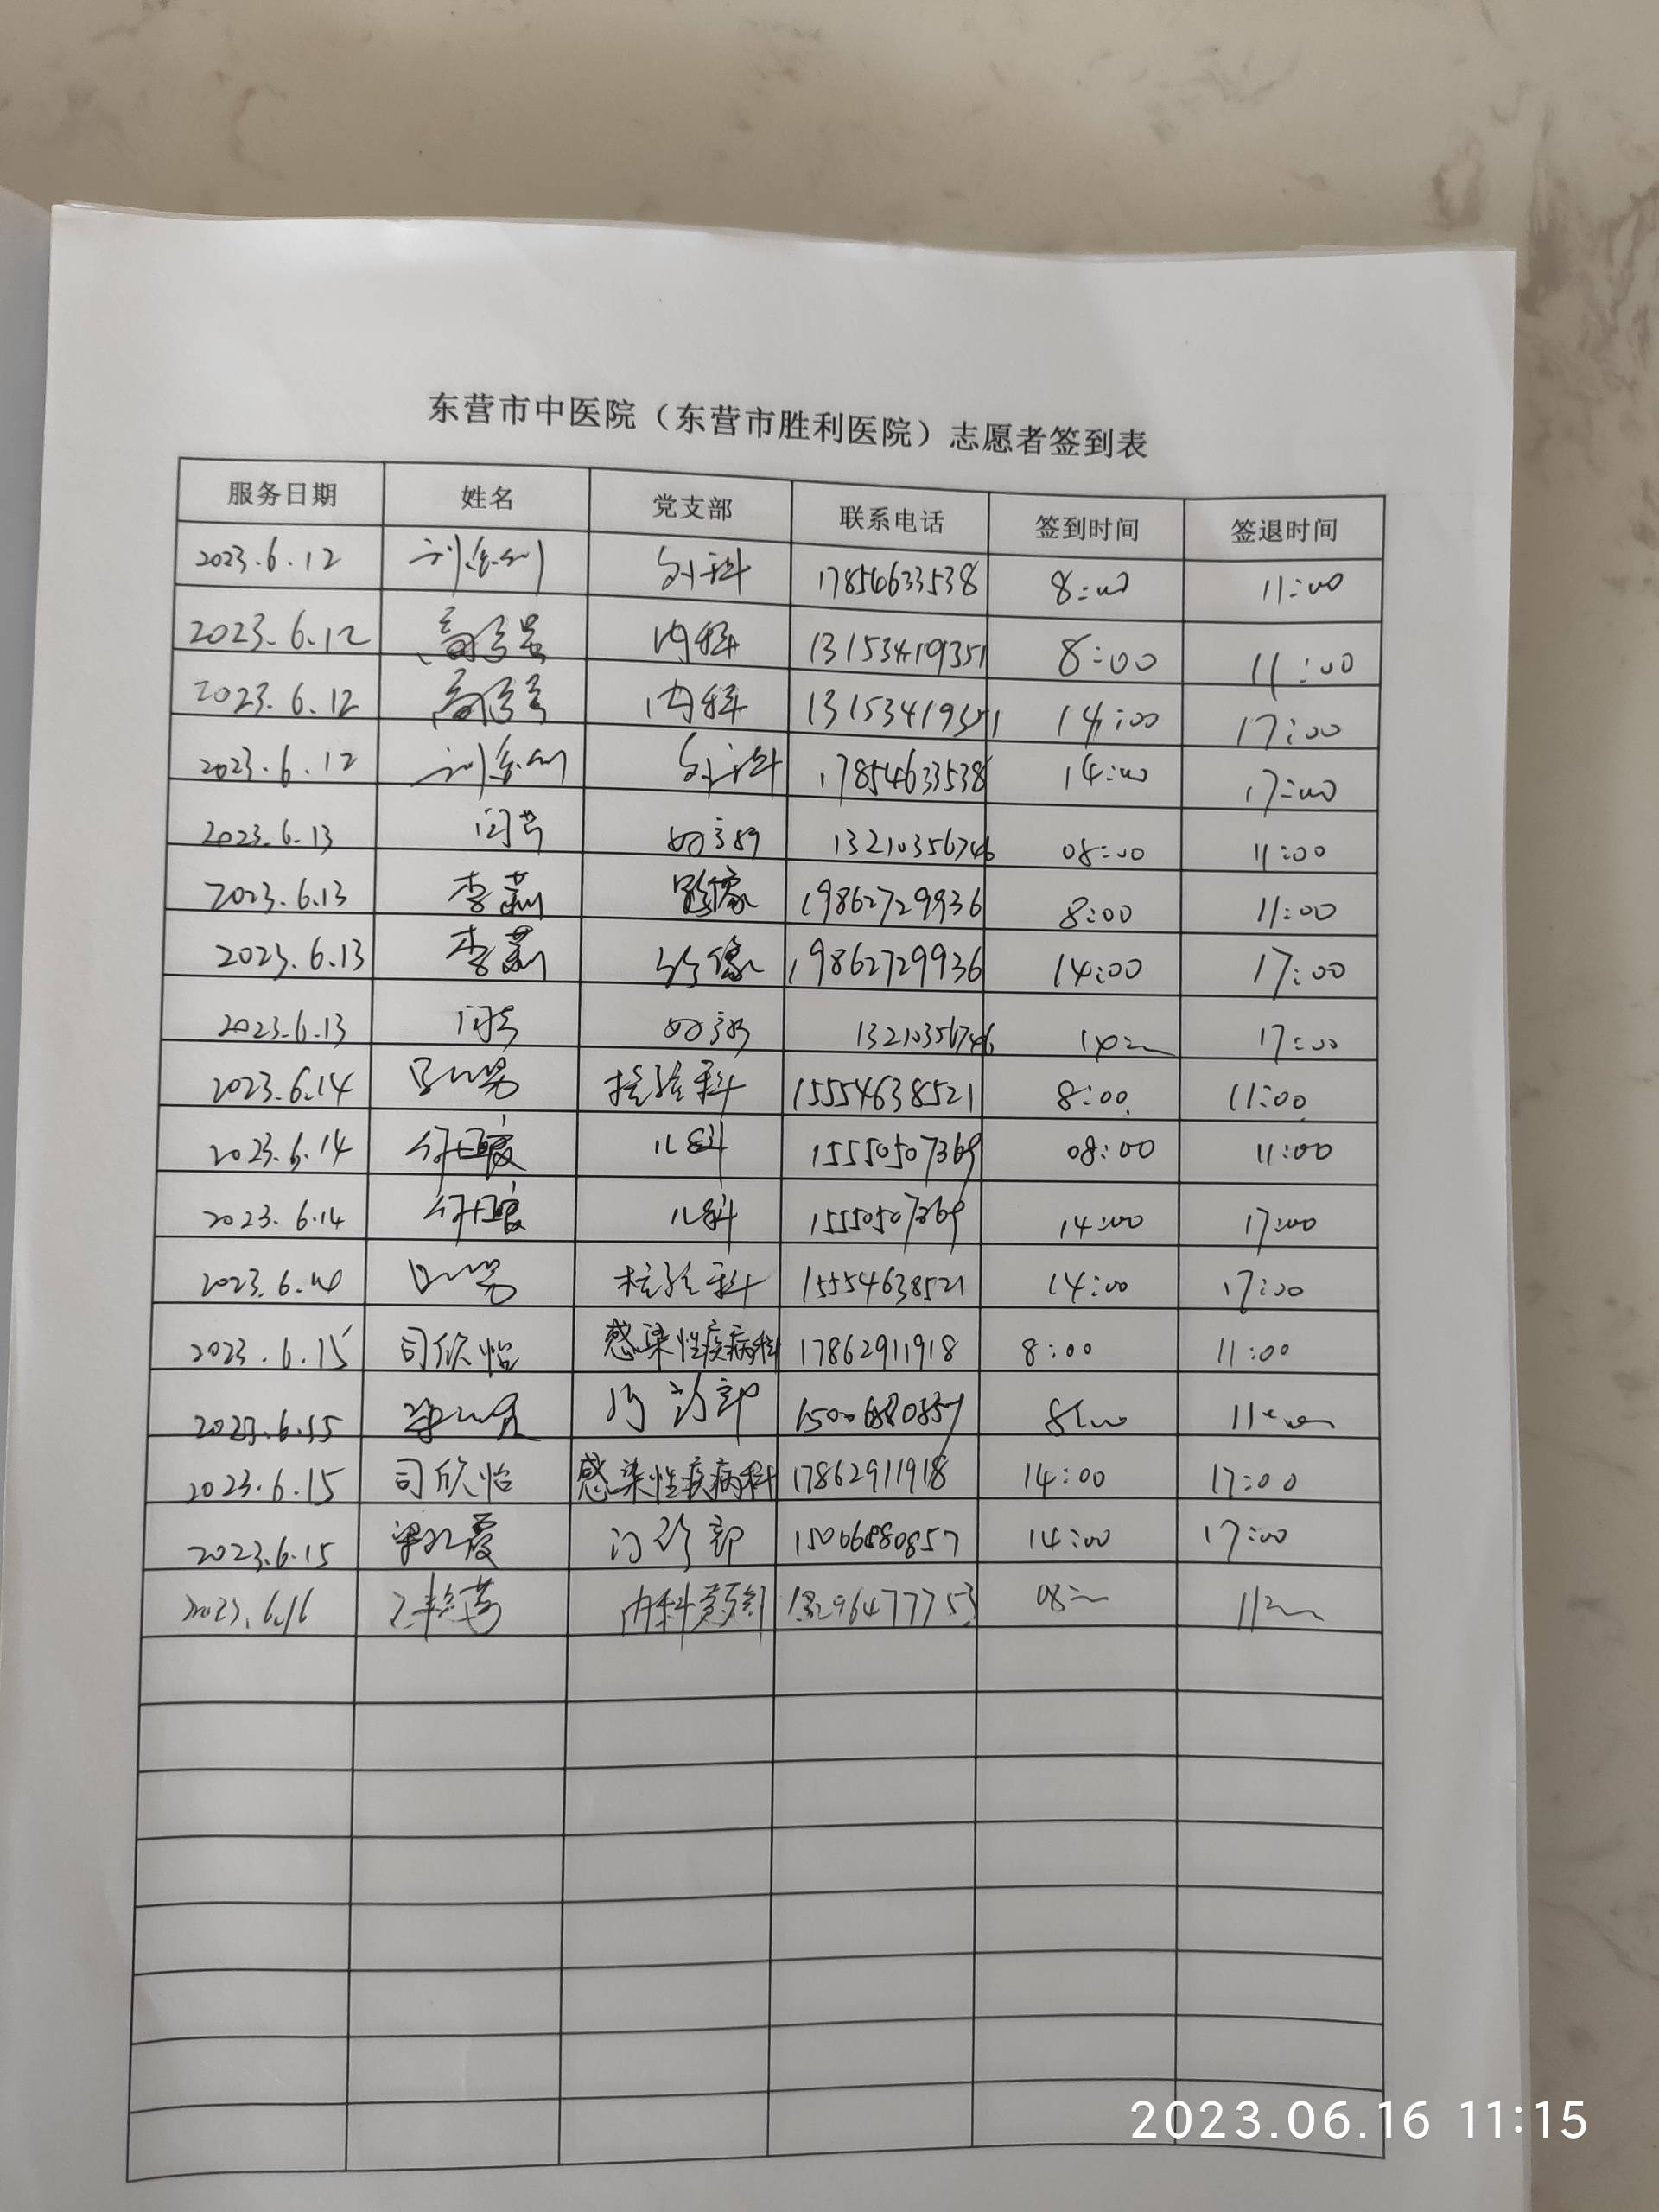 东营市中医院（东营市胜利医院）志愿者签到表
服务日期 姓名 党支部 联系电话 签到时间 签退时间
2023.6.12 外科 17854633538 8:00 11:00
2023.6.12 内科 13153419351 8:00 11:00
2023.6.12 内科 13153419351 14:00 17:00
2023.6.12 外科 17854633538 14:00 17:00
2023.6.13 13210356746 08:00 11:00
2023.6.13 李莉 影像 19862729936 8:00 11:00
2023.6.13 李莉 影像 19862729936 14:00 17:00
2023.6.13 13210356746 17:00
2023.6.14 检验科 15554638521 8:00 11:00
2023.6.14 儿科 15550507369 08:00 11:00
2023.6.14 儿科 15550507369 14:00 17:00
2023.6.14 检验科 15554638521 14:00 17:00
2023.6.15 司欣怡 感染性疾病科 17862911918 8:00 11:00
2023.6.15 门诊部 15006880857 8:00 11:00
2023.6.15 司欣怡 感染性疾病科 17862911918 14:00 17:00
2023.6.15 门诊部 15006880857 14:00 17:00
2023.6.16 内科
2023.06.16 11:15